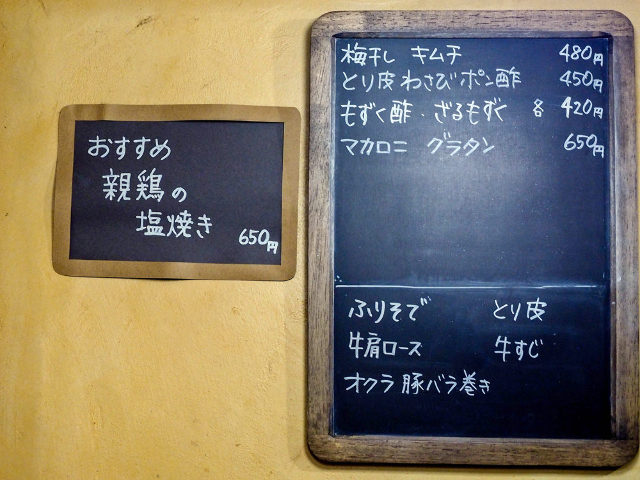 おすすめ
親鶏の
塩焼き
650円
梅干し キムチ 480円
とり皮わさびポン酢 450円
もずく酢・ざるもずく 各 420円
マカロニ グラタン 650円
ふりそで とり皮
牛肩ロース 牛すじ
オクラ豚バラ巻き